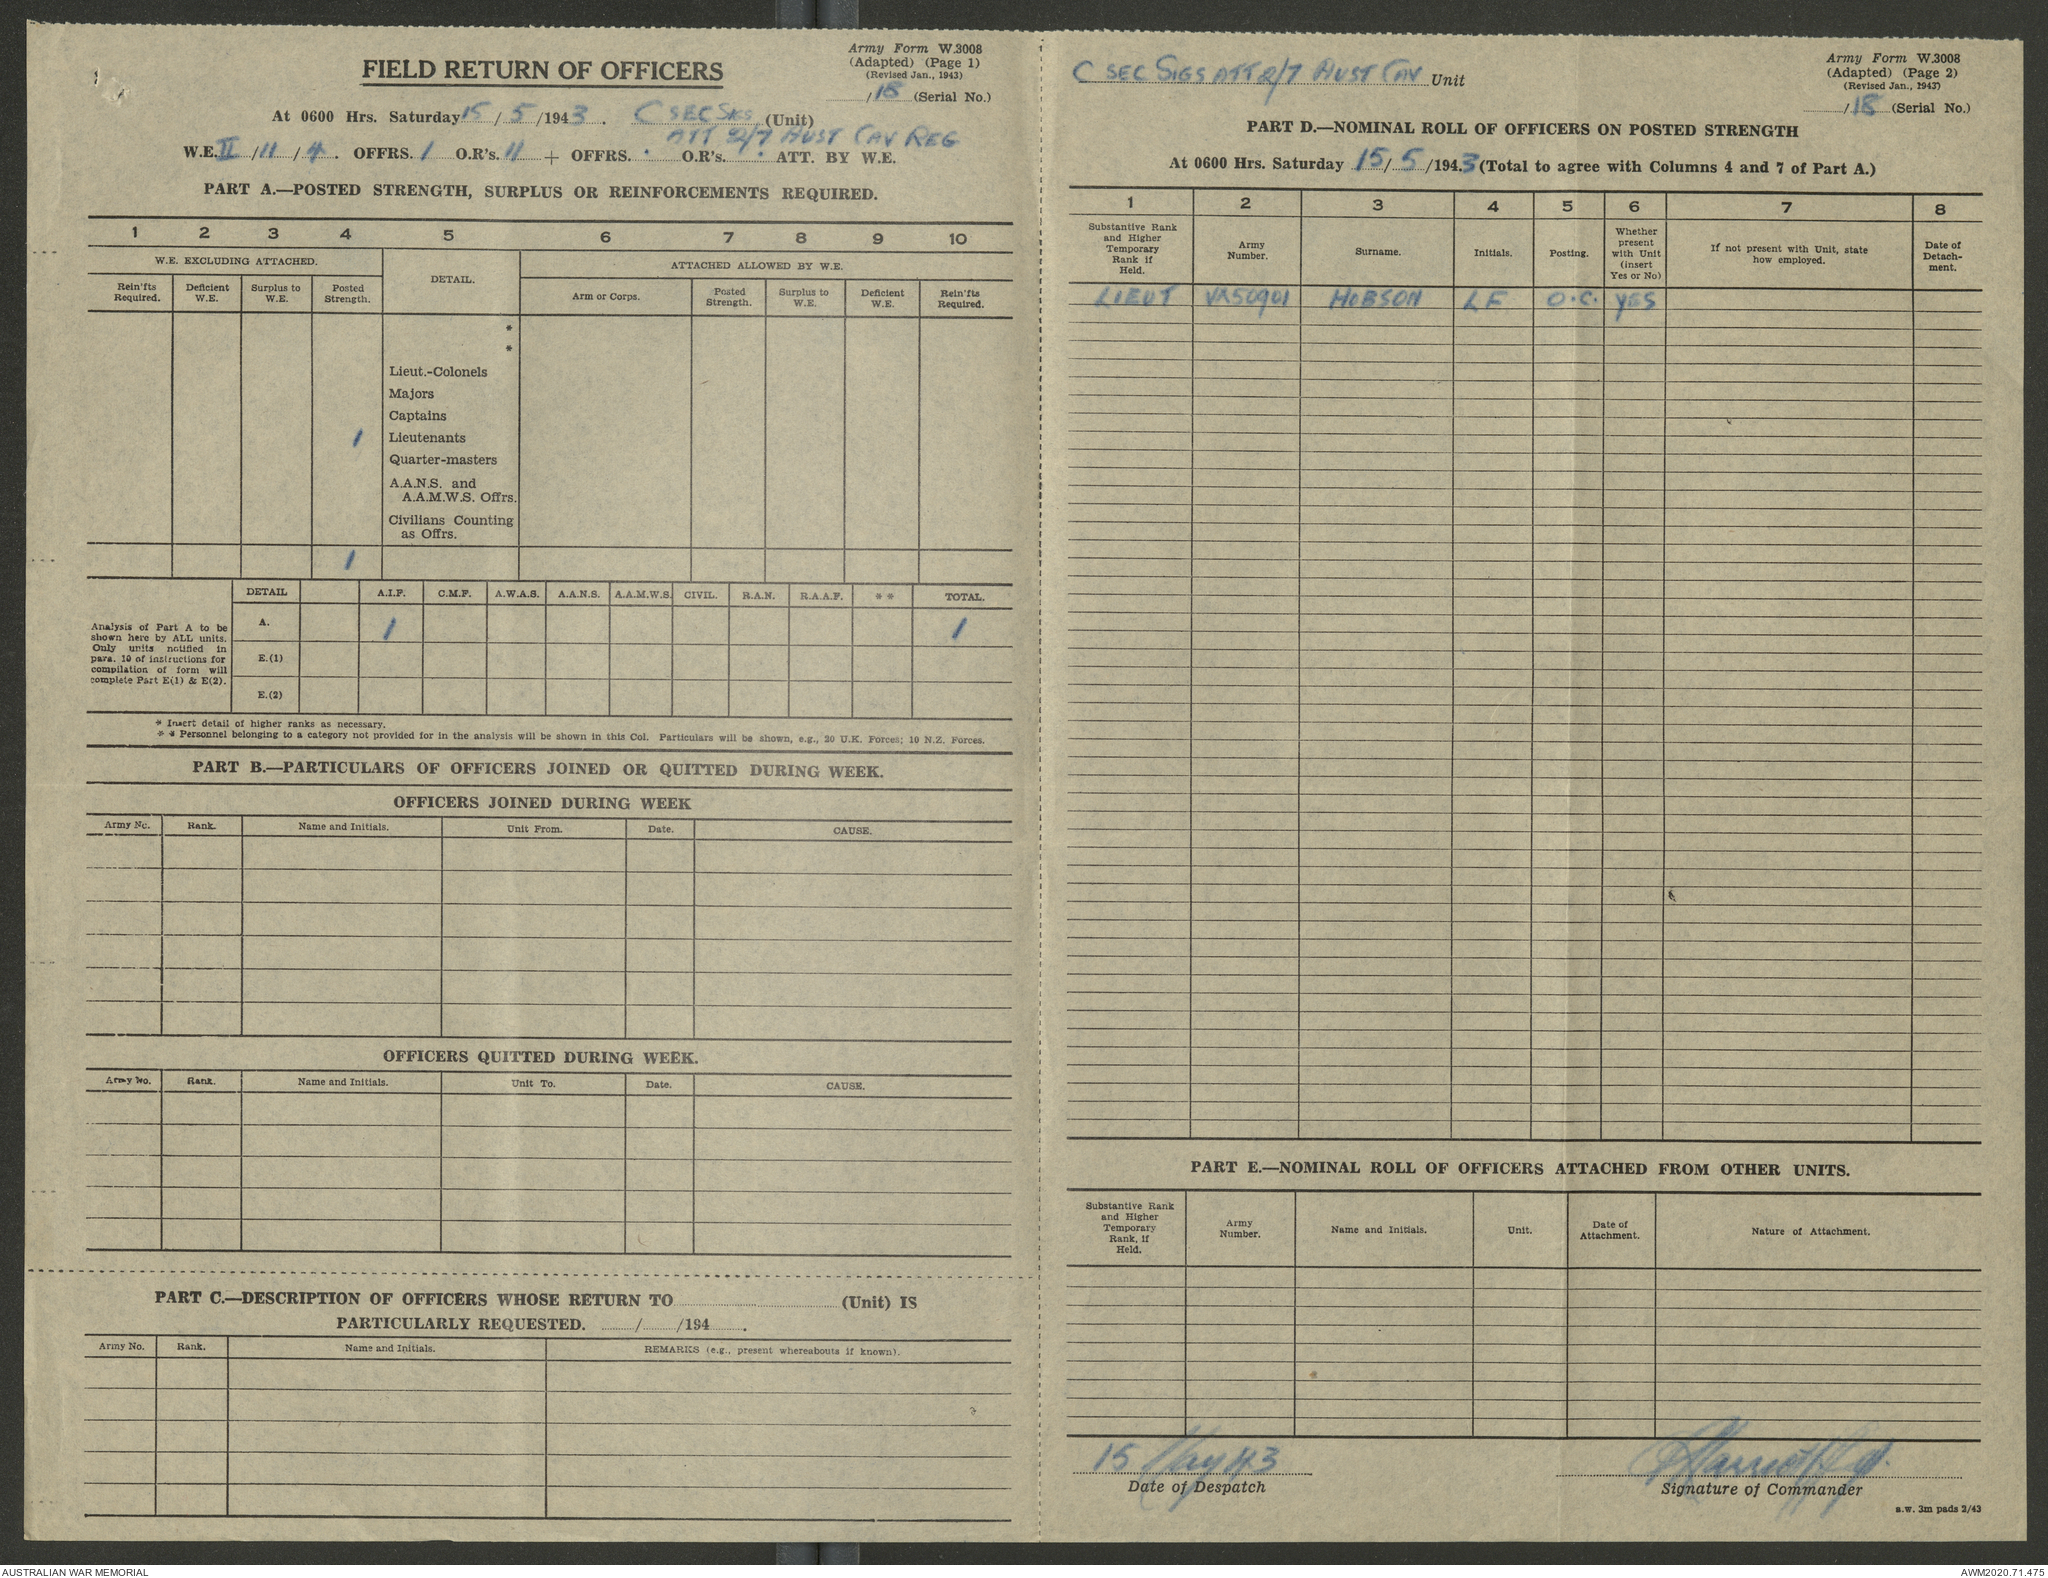 Army Form W.3008
(Adapted) (Page 1)
(Revised Jan., 1943)
FIELD RETURN OF OFFICERS
/ 18 (Serial No.)
At 0600 Hrs. Saturday 15 / 5 / 1943. C SEC SIGS (Unit)
ATT 2/7 AUST CAV REG
W.E. II / 11 / 4. OFFRS. 1 O.R's. 11 + OFFRS. . O.R's. . ATT. BY W.E.
PART A.—POSTED STRENGTH, SURPLUS OR REINFORCEMENTS REQUIRED.
1 2 3 4 5 6 7 8 9 10
W.E. EXCLUDING ATTACHED. DETAIL. ATTACHED ALLOWED BY W.E.
Rein'fts Required. Deficient W.E. Surplus to W.E. Posted Strength. Arm or Corps. Posted Strength. Surplus to W.E. Deficient W.E. Rein'fts Required.
*
*
Lieut.-Colonels
Majors
Captains
1 Lieutenants
Quarter-masters
A.A.N.S. and
A.A.M.W.S. Offrs.
Civilians Counting
as Offrs.
1
DETAIL A.I.F. C.M.F. A.W.A.S. A.A.N.S. A.A.M.W.S. CIVIL. R.A.N. R.A.A.F. * * TOTAL.
Analysis of Part A to be
shown here by ALL units.
Only units notified in
para. 10 of instructions for
compilation of form will
complete Part E(1) & E(2).
A. 1 1
E.(1)
E.(2)
* Insert detail of higher ranks as necessary.
* * Personnel belonging to a category not provided for in the analysis will be shown in this Col. Particulars will be shown, e.g., 20 U.K. Forces; 10 N.Z. Forces.
PART B.—PARTICULARS OF OFFICERS JOINED OR QUITTED DURING WEEK.
OFFICERS JOINED DURING WEEK
Army No. Rank. Name and Initials. Unit From. Date. CAUSE.
OFFICERS QUITTED DURING WEEK.
Army No. Rank. Name and Initials. Unit To. Date. CAUSE.
PART C.—DESCRIPTION OF OFFICERS WHOSE RETURN TO (Unit) IS
PARTICULARLY REQUESTED. / /194 .
Army No. Rank. Name and Initials. REMARKS (e.g., present whereabouts if known).
C SEC SIGS ATT 2/7 AUST CAV Unit
Army Form W.3008
(Adapted) (Page 2)
(Revised Jan., 1943)
/ 18 (Serial No.)
PART D.—NOMINAL ROLL OF OFFICERS ON POSTED STRENGTH
At 0600 Hrs. Saturday 15 / 5 /1943 (Total to agree with Columns 4 and 7 of Part A.)
1 2 3 4 5 6 7 8
Substantive Rank and Higher Temporary Rank if Held. Army Number. Surname. Initials. Posting. Whether present with Unit (insert Yes or No) If not present with Unit, state how employed. Date of Detach-ment.
LIEUT VX50901 HOBSON LF O.C. YES
PART E.—NOMINAL ROLL OF OFFICERS ATTACHED FROM OTHER UNITS.
Substantive Rank and Higher Temporary Rank, if Held. Army Number. Name and Initials. Unit. Date of Attachment. Nature of Attachment.
15 May 43
Date of Despatch
Signature of Commander
a.w. 3m pads 2/43
AUSTRALIAN WAR MEMORIAL
AWM2020.71.475